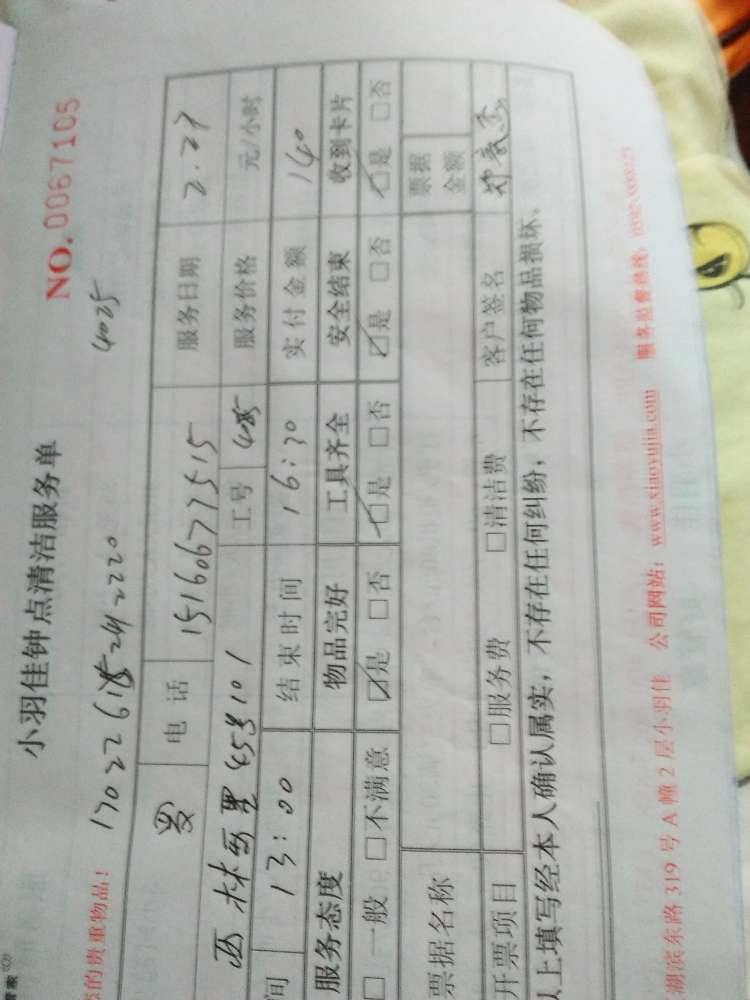 小羽佳钟点清洁服务单
NO. 0067105
的贵重物品!
4025
电话 15160677515 服务日期 2.27
西林东里45号101 工号 4025 服务价格 元/小时
间 13:00 结束时间 16:30 实付金额 140
服务态度 物品完好 工具齐全 安全结束 收到卡片
□一般 □不满意 ☑是 □否 ☑是 □否 ☑是 □否 ☑是 □否
票据名称 票据金额
开票项目 □服务费 □清洁费 客户签名
以上填写经本人确认属实，不存在任何纠纷，不存在任何物品损坏。
湖滨东路 319 号 A 幢 2 层小羽佳 公司网站: www.xiaoyujia.com 服务监督热线: